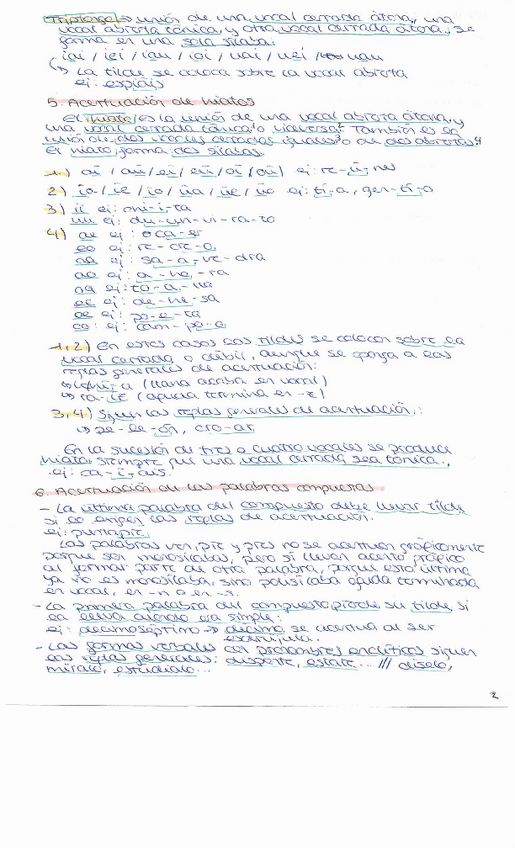 Triptongo → unión de una vocal cerrada átona, una
vocal abierta tónica, y otra vocal cerrada átona, se
forma en una sola sílaba.
· iai / iei / iau / ioi / uai / uei / uau
↳ La tilde se coloca sobre la vocal abierta
ej: espiáis
5. Acentuación de hiatos
El hiato es la unión de una vocal abierta átona, y
una vocal cerrada tónica¹ o viceversa². También es la
unión de dos vocales cerradas iguales³ o de dos abiertas⁴
El hiato forma dos sílabas.
1) aí / aú / eí / eú / oí / oú ej: re-ú-nes
2) ía / íe / ío / úa / úe / úo ej: tí-a, gen-tí-o
3) ii ej: chi-i-ta
uu ej: du-un-vi-ra-to
4) ae ej:
eo ej: re-cre-o
aa ej: sa-a-ve-dra
ao ej: a-ho-ra
oa ej: to-a-lla
ee ej: de-he-sa
oe ej: po-e-ta
eo: ej: cam-pe-o
1, 2) En estos casos las tildes se colocan sobre la
vocal cerrada o débil, aunque se oponga a las
reglas generales de acentuación:
(llana acaba en vocal)
↳ ra-íz (aguda termina en -z)
3, 4) Siguen las reglas generales de acentuación:
↳ pe-le-ón, cro-ar
En la sucesión de tres o cuatro vocales se produce
hiato siempre que una vocal cerrada sea tónica.
ej: ca-í-ais.
6. Acentuación de las palabras compuestas
- La última palabra del compuesto debe llevar tilde
si lo exigen las reglas de acentuación.
ej: puntapié
Las palabras ven, pie y pues no se acentúan gráficamente
porque son monosílabas, pero sí llevan acento gráfico
al formar parte de otra palabra, porque esta última
ya no es monosílaba, sino polisílaba aguda terminada
en vocal, en -n o en -s.
- La primera palabra del compuesto pierde su tilde, si
la llevaba cuando era simple:
ej: decimoséptimo → décimo se acentúa al ser
esdrújula.
- Las formas verbales con pronombres enclíticos siguen
las reglas generales: desperte, estate... /// díselo,
míralo, estúdialo...
2